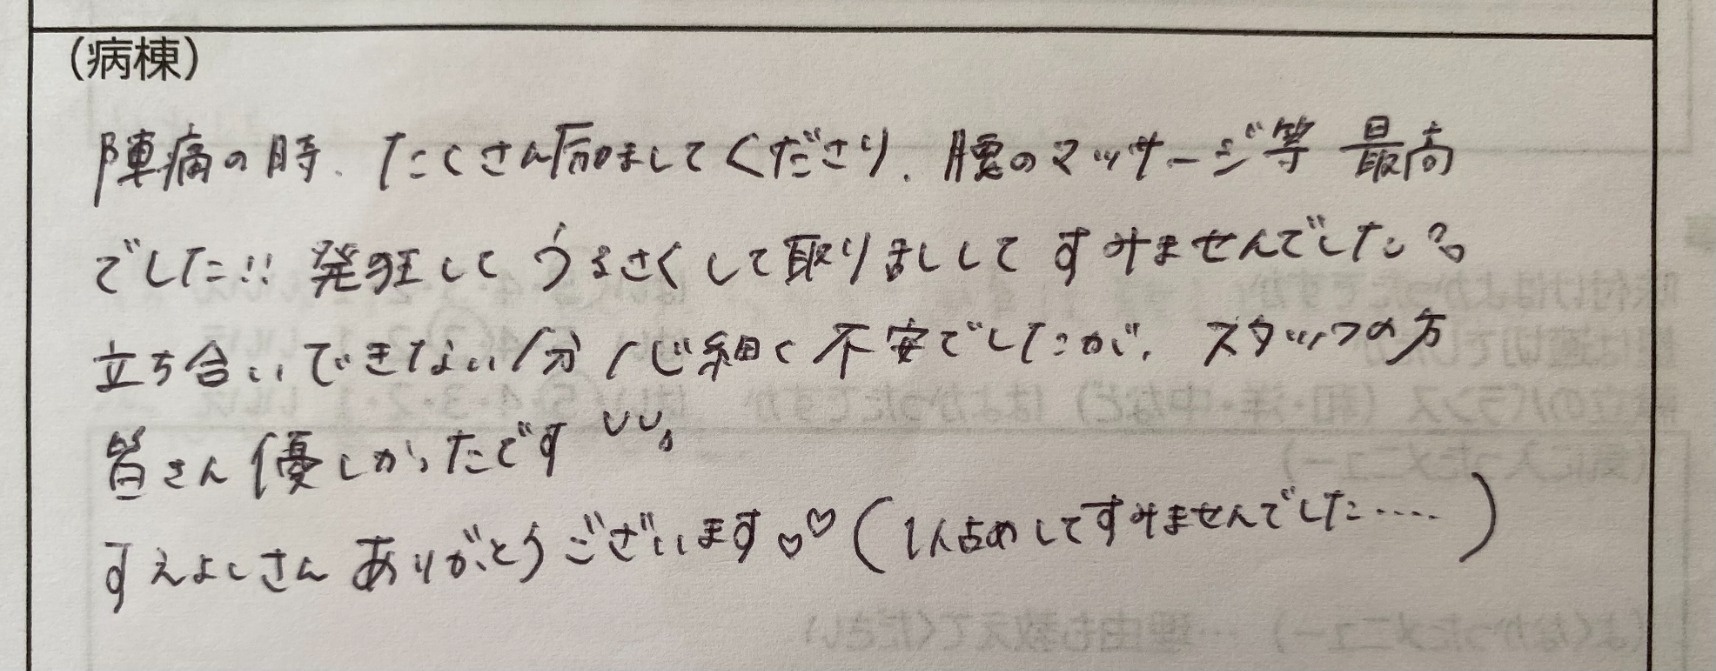 (病棟)
陣痛の時、たくさん励ましてくださり、腰のマッサージ等 最高
でした!! 発狂して うるさくして取りましして すみませんでした
立ち合いできない分 心細く 不安でしたが、スタッフの方
皆さん 優しかったです
すえよしさん ありがとうございます♡♡(1人占めしてすみませんでした……)